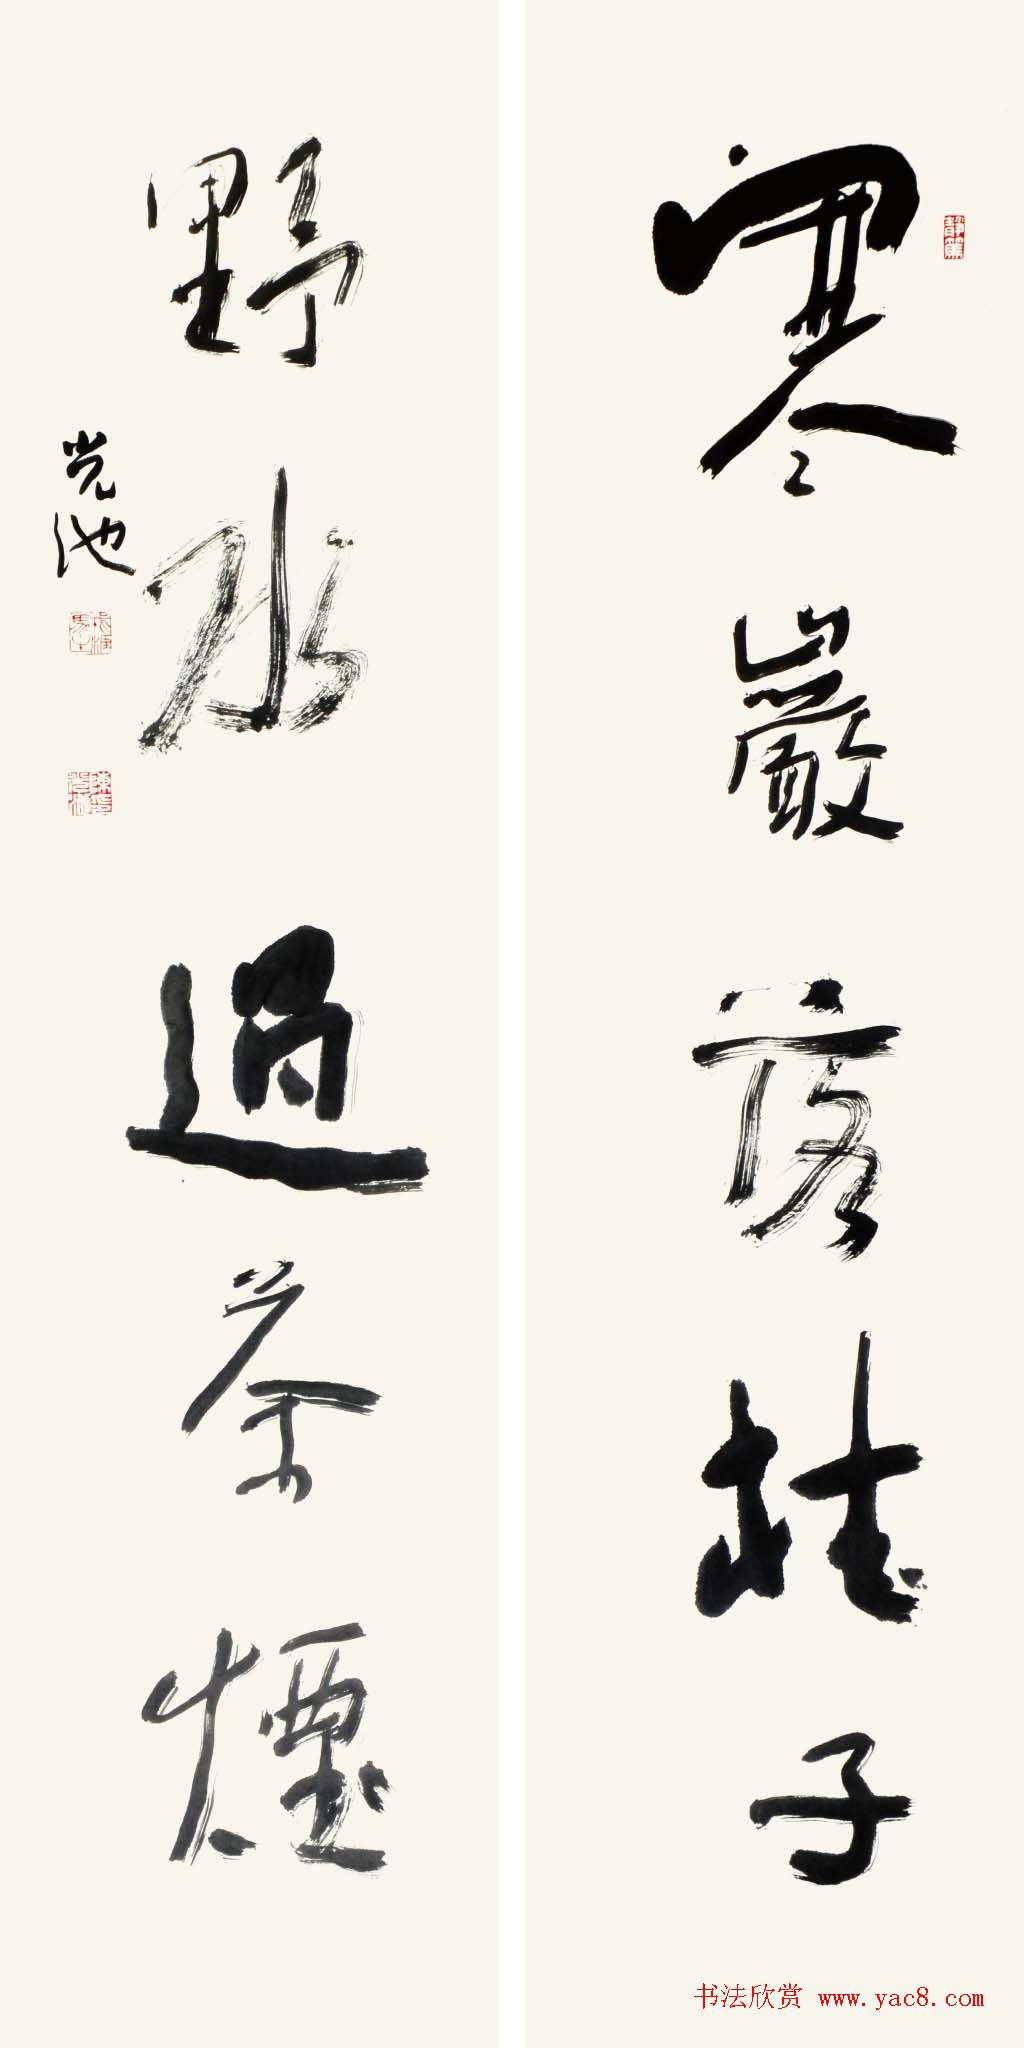 寒巖落桂子
野水過茶煙
光池
書法欣賞 www.yac8.com